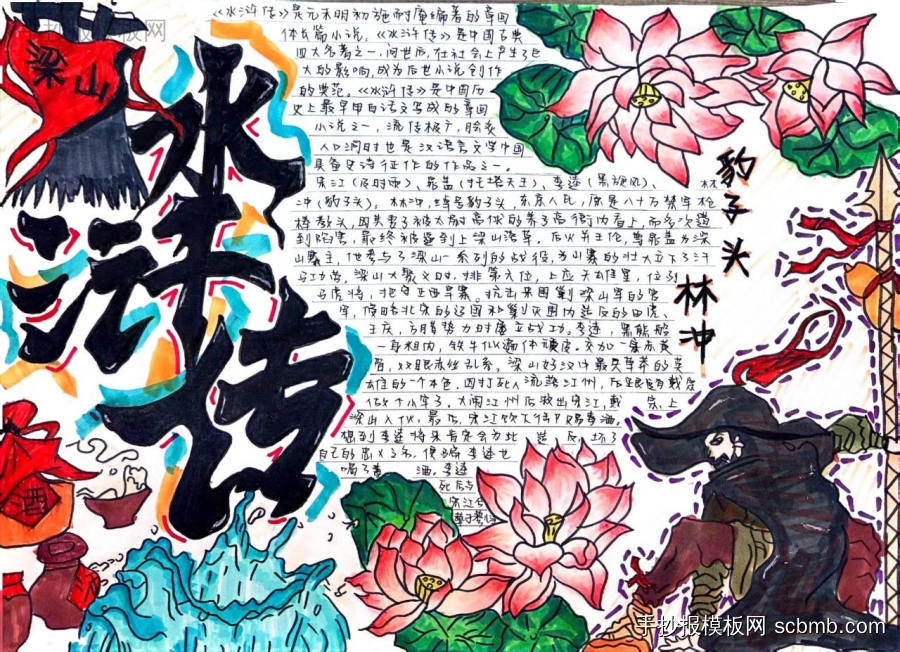 梁山
水浒传
《水浒传》是元末明初施耐庵编著的章回
体长篇小说。《水浒传》是中国古典
四大名著之一，问世后，在社会上产生了巨
大的影响，成为后世小说创作
的典范。《水浒传》是中国历
史上最早用白话文写成的章回
小说之一，流传极广，脍炙
人口同时也是汉语言文学中国
具备史诗征作的作品之一
宋江（及时雨）、晁盖（托塔天王）、李逵（黑旋风）、林
冲（豹子头）。林冲，绰号豹子头，东京人氏，原是八十万禁军枪
棒教头，因其妻子被太尉高俅的养子高衙内看上，而多次遭
到陷害，最终被逼到上梁山落草。后火并王伦，尊晁盖为梁
山寨主，他参与了梁山一系列的战役，为山寨的壮大立下了汗
马功劳，梁山大聚义时，排第六位，上应天雄星，位列
马虎将，把守正西旱寨。抗击朝围剿梁山军的官
军，
王庆，方腊势力时屡立战功。李逵，黑熊般
一身粗肉，铁牛似遍体顽皮。交加一字赤黄
眉，双眼赤丝乱系，梁山好汉中最具草莽的英
雄的一个本色，因打死人流落江州，
做个小牢子，大闹江州后救出宋江，戴宗，上
梁山入伙，最后，宋江饮
想到李逵将来肯定会为此造反，坏了
自己的忠义之名，便
喝了毒酒，李逵
死后与
宋江合
葬于蓼儿洼
豹子头
林冲
酒
手抄报模板网 scbmb.com